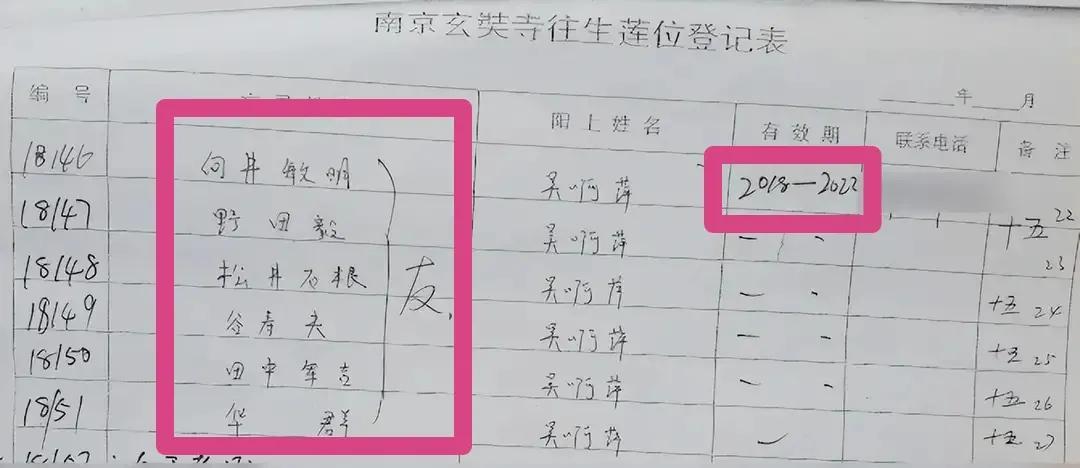 南京玄奘寺往生莲位登记表
年 月
编号 阳上姓名 有效期 联系电话 备注
18146 向井敏明 吴啊萍 2018—2022 十五 22
18147 野田毅 吴啊萍 — - 23
18148 松井石根 友. 吴啊萍 — - 十五 24
18149 谷寿夫 吴啊萍 — - 十五 25
18150 田中军吉 吴啊萍 — - 十五 26
18151 华群 吴啊萍 — 十五 27